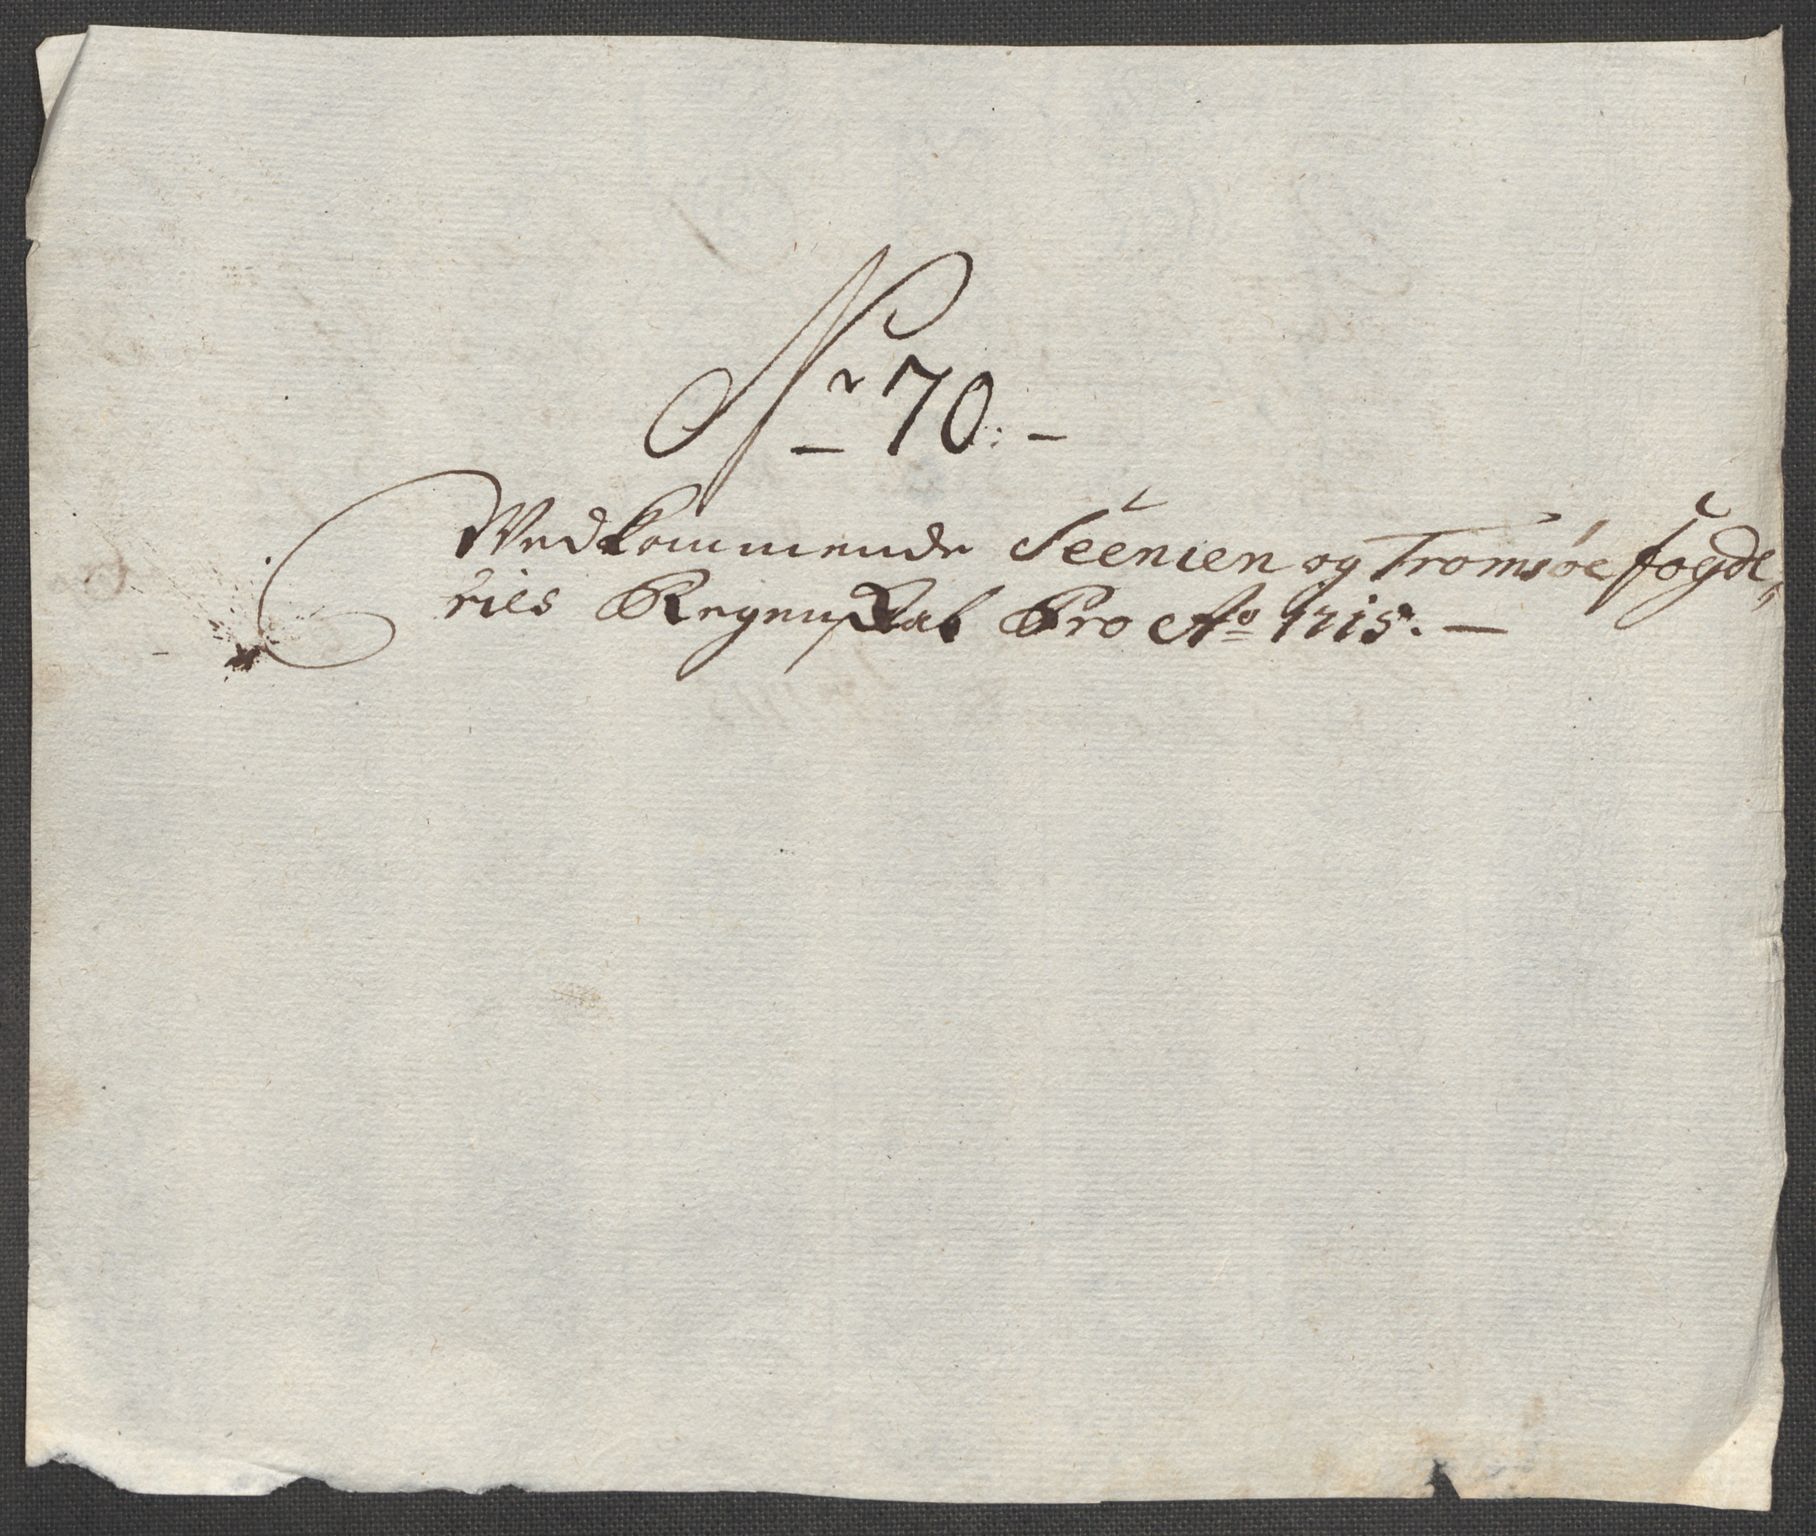 Nr 70. –
Wedkommende Seenien og Tromsøe fogde,
ries Regenskab Pro Ao 1715. –